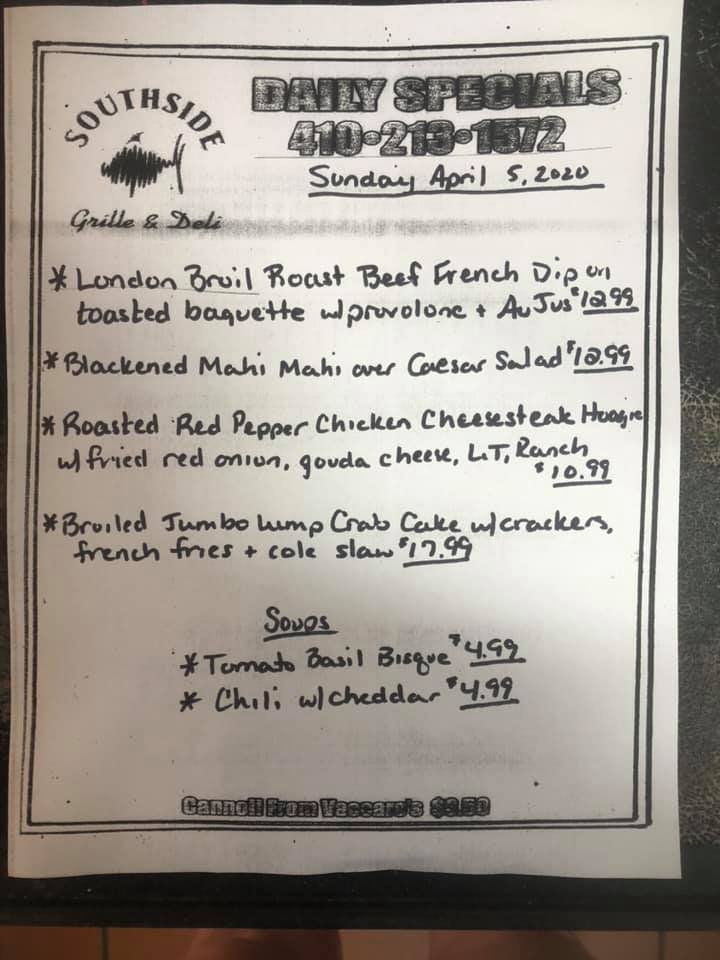 SOUTHSIDE
Grille & Deli
DAILY SPECIALS
410•213•1572
Sunday April 5, 2020
* London Broil Roast Beef French Dip on
toasted baguette w/provolone + Au Jus $12.99
* Blackened Mahi Mahi over Caesar Salad $12.99
* Roasted Red Pepper Chicken Cheesesteak Hoagie
w/ fried red onion, gouda cheese, L.T, Ranch
$10.99
* Broiled Jumbo Lump Crab Cake w/crackers,
french fries + cole slaw $17.99
Soups
* Tomato Basil Bisque $4.99
* Chili w/cheddar $4.99
Cannoli From Vaccaro's $3.50